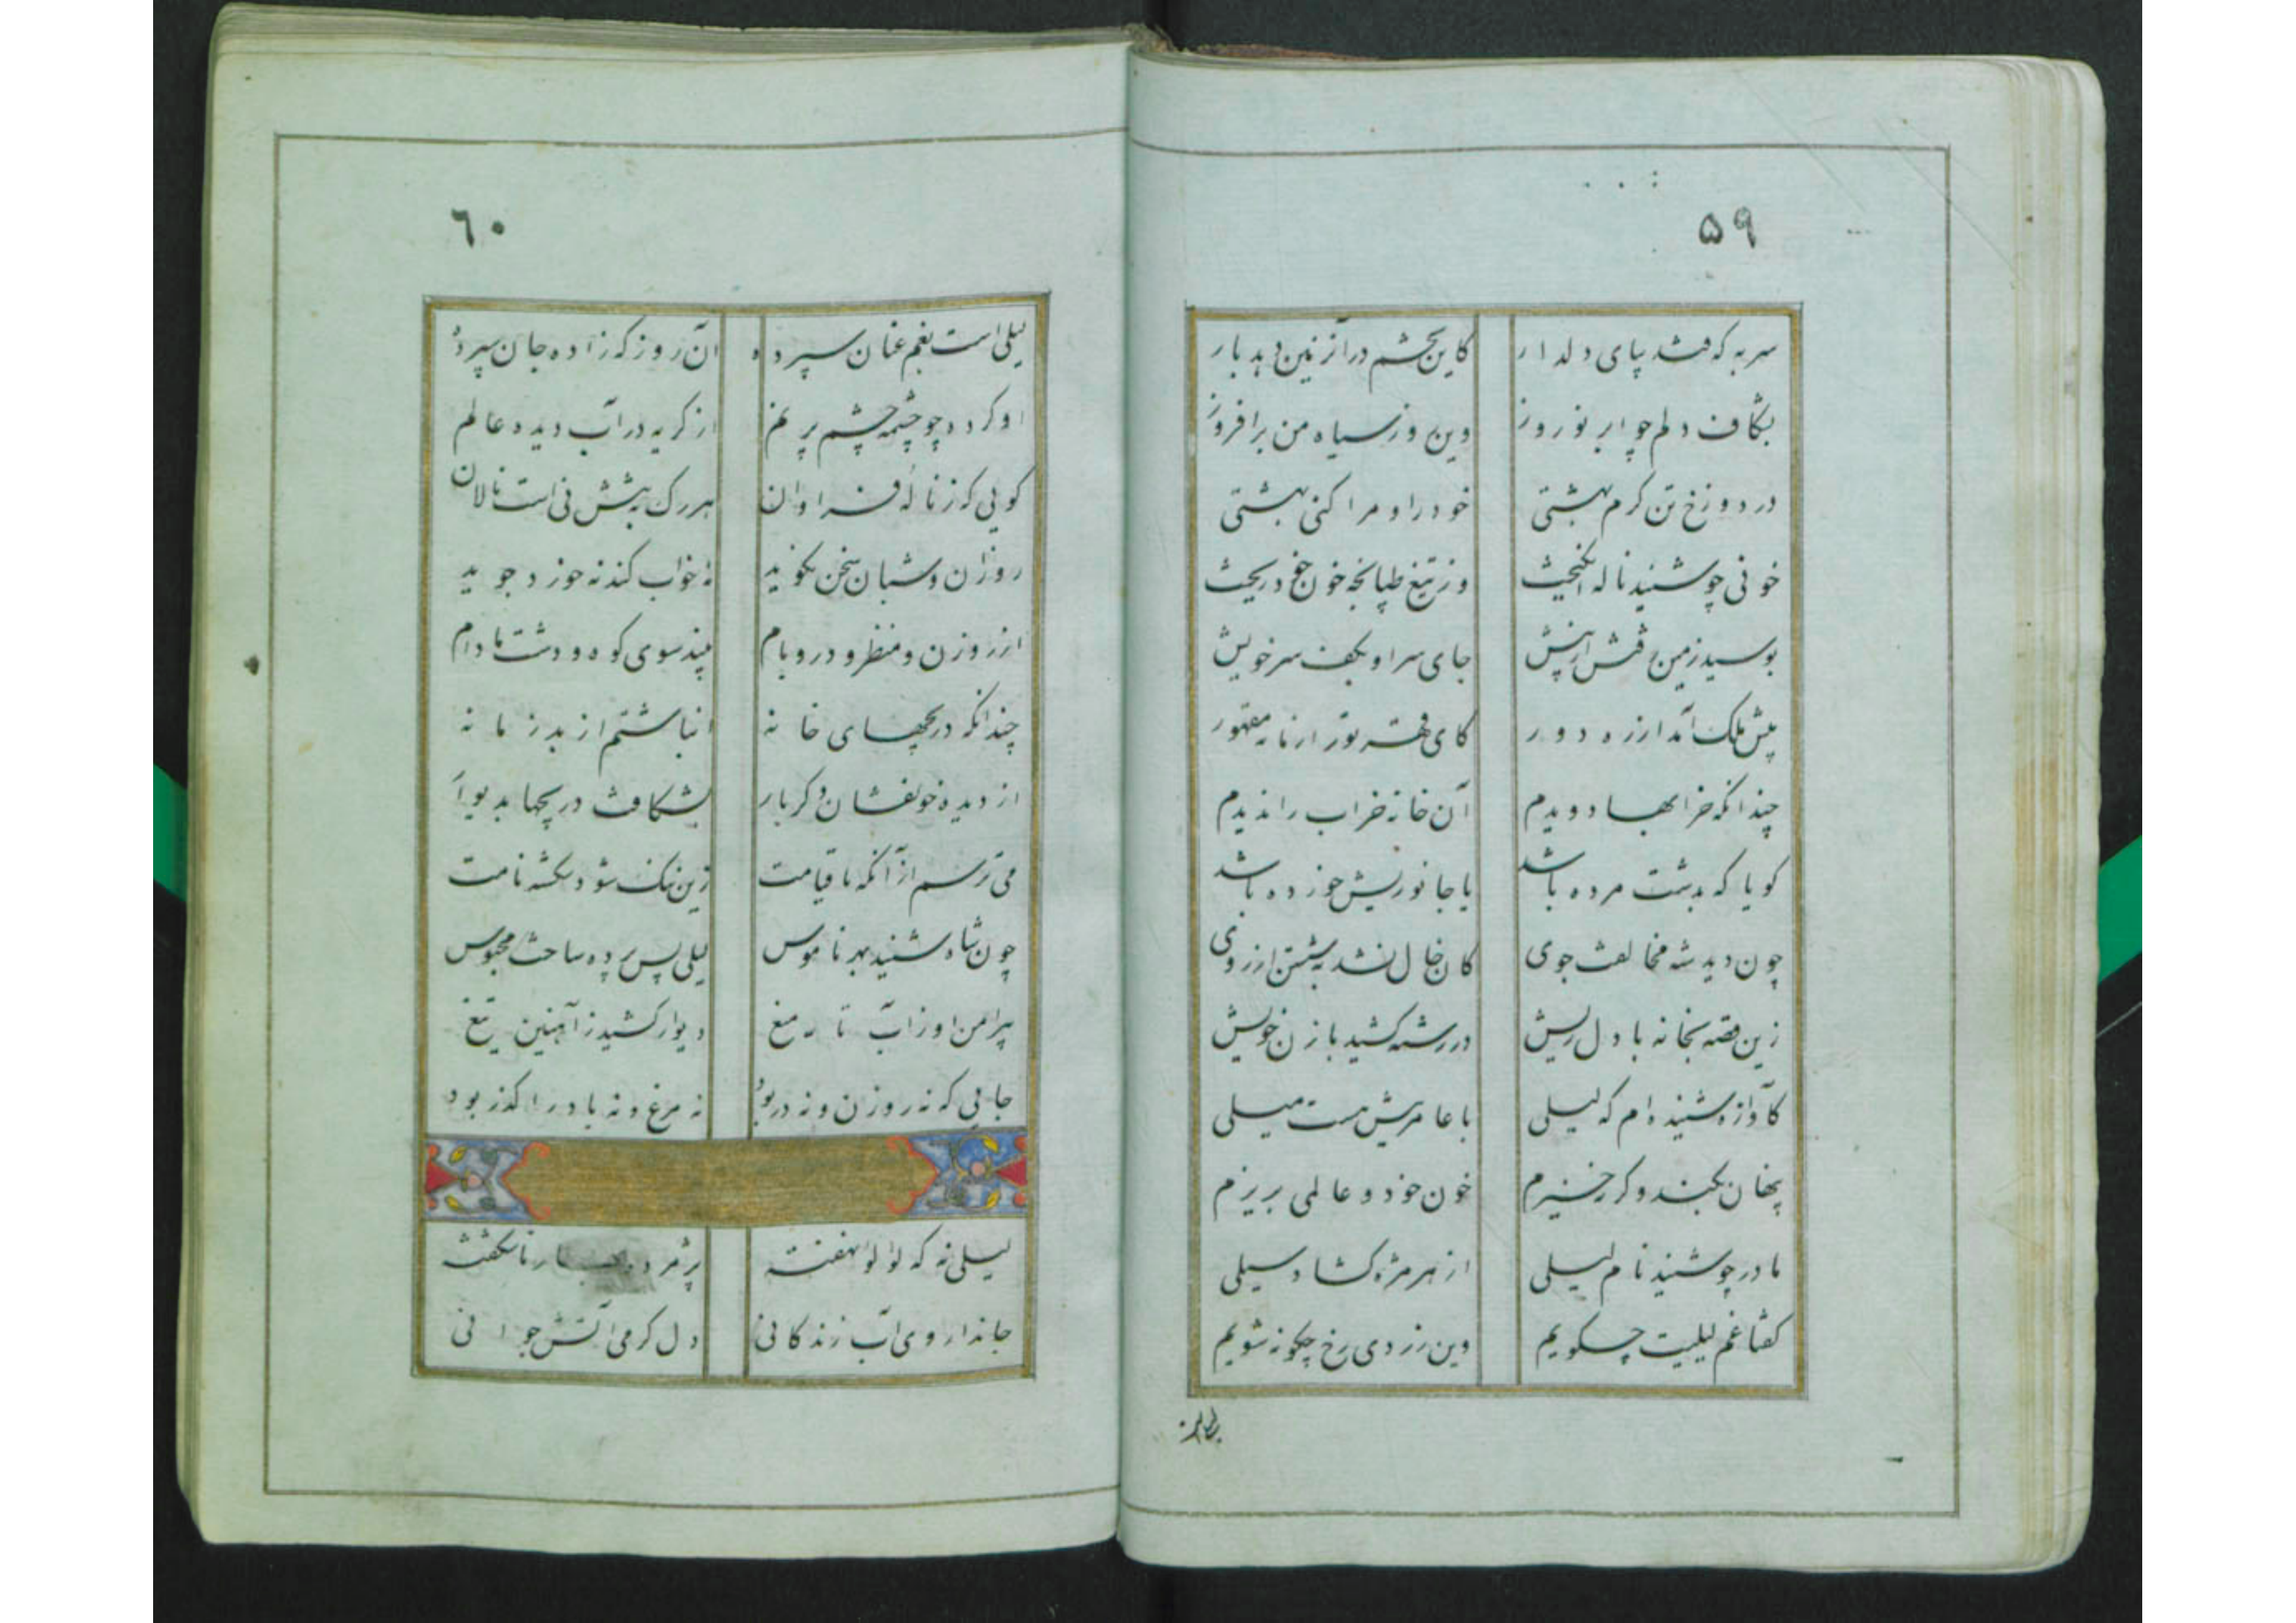 ۵۹
سر به که فتد بپای دلدار کاین بچشم درآزنین دهد بار
بشکاف دلم چو ابر نوروز وین روز سیاه من برافروز
در دوزخ تن کرم بهشتی خود را و مرا کنی بهشتی
خونی چو شنید ناله انگیخت وز تیغ طپانچه خون خود ریخت
بوسید زمین قتش از پیش جای سر او بکف سر خویش
پیش ملک آمد از ره دور کای قهر تو را زمانه مقهور
چندانکه خرابها دویدم آن خانه خراب را ندیدم
کویا که بدشت مرده باشد یا جانوریش خورده باشد
چون دید شه مخالفت جوی کان خال نشد بشستن از روی
زین قصه بخانه با دل ریش در رشته کشید با زن خویش
کآوازه شنیده ام که لیلی با عامریش هست میلی
پنهان بکند و کر خیزم خون خود و عالمی بریزم
مادر چو شنید نام لیلی از هر مژه کشاد سیلی
کفتا غم لیلیت چسکویم وین زردی رخ چکونه شویم
۶۰
لیلی است بغم عنان سپرده آن روز که زاده جان سپرده
او کرده چو چشمه چشم پر نم از کریه در آب دیده عالم
کویی که ز ناله فراوان هر رک بتنش نی است نالان
روزان و شبان سخن نکوید نه خواب کند نه خورد جوید
از روزن و منظر و در و بام بیند سوی کوه و دشت مادام
چندانکه دریچهای خانه انباشتم از بد زمانه
از دیده خونفشان دکر بار بشکافت دریچها بدیوار
می ترسم از آنکه تا قیامت زین ننک شود شکسته نامت
چون شاه شنید بهر ناموس لیلی پس پرده ساخت محبوس
پیرامن او ز آب تا میغ دیوار کشید ز آهنین تیغ
جایی که نه روزن و نه در بود نه مرغ و نه باد را کذر بود
لیلی نه که لؤلؤ نهفته پژمرده بهار ناشکفته
جاندار وی آب زندکانی دل کرمی آتش جوانی